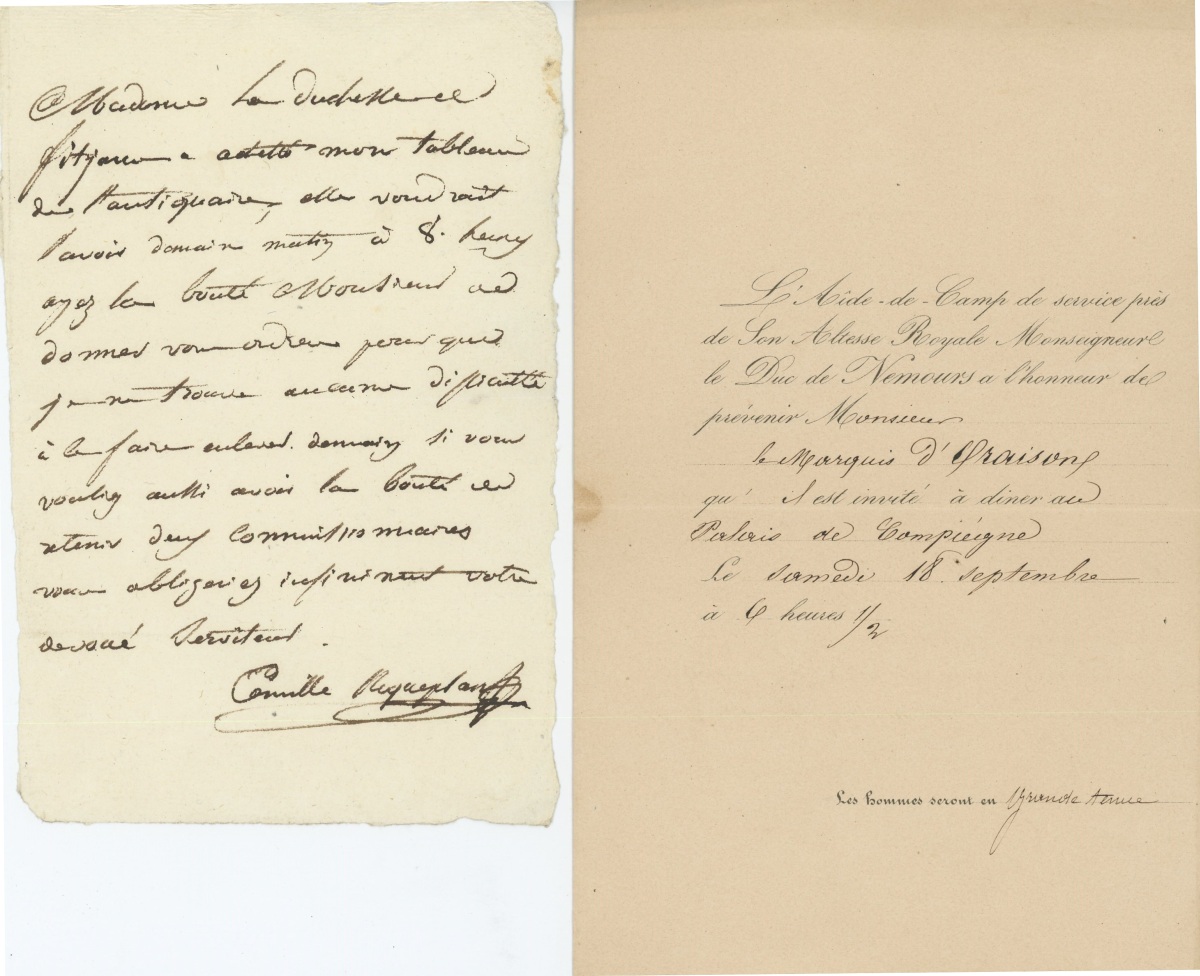 Madame la duchesse de
fitzjam a acheté mon tableau
de l'antiquaire, elle voudrait
l'avoir demain matin à 8. heures
ayez la bonté Monsieur de
donner vos ordres pour que
je ne trouve aucune difficulté
à le faire enlever demain si vous
vouliez aussi avoir la bonté de
retenir deux commissionnaires
vous obligeriez infiniment votre
dévoué serviteur.
Camille Roqueplan
L'Aide-de-Camp de service près
de Son Altesse Royale Monseigneur
le Duc de Nemours a l'honneur de
prévenir Monsieur
le Marquis d'Oraison
qu' il est invité à diner au
Palais de Compiégne
Le samedi 18 septembre
à 6 heures 1/2
Les hommes seront en grande tenue